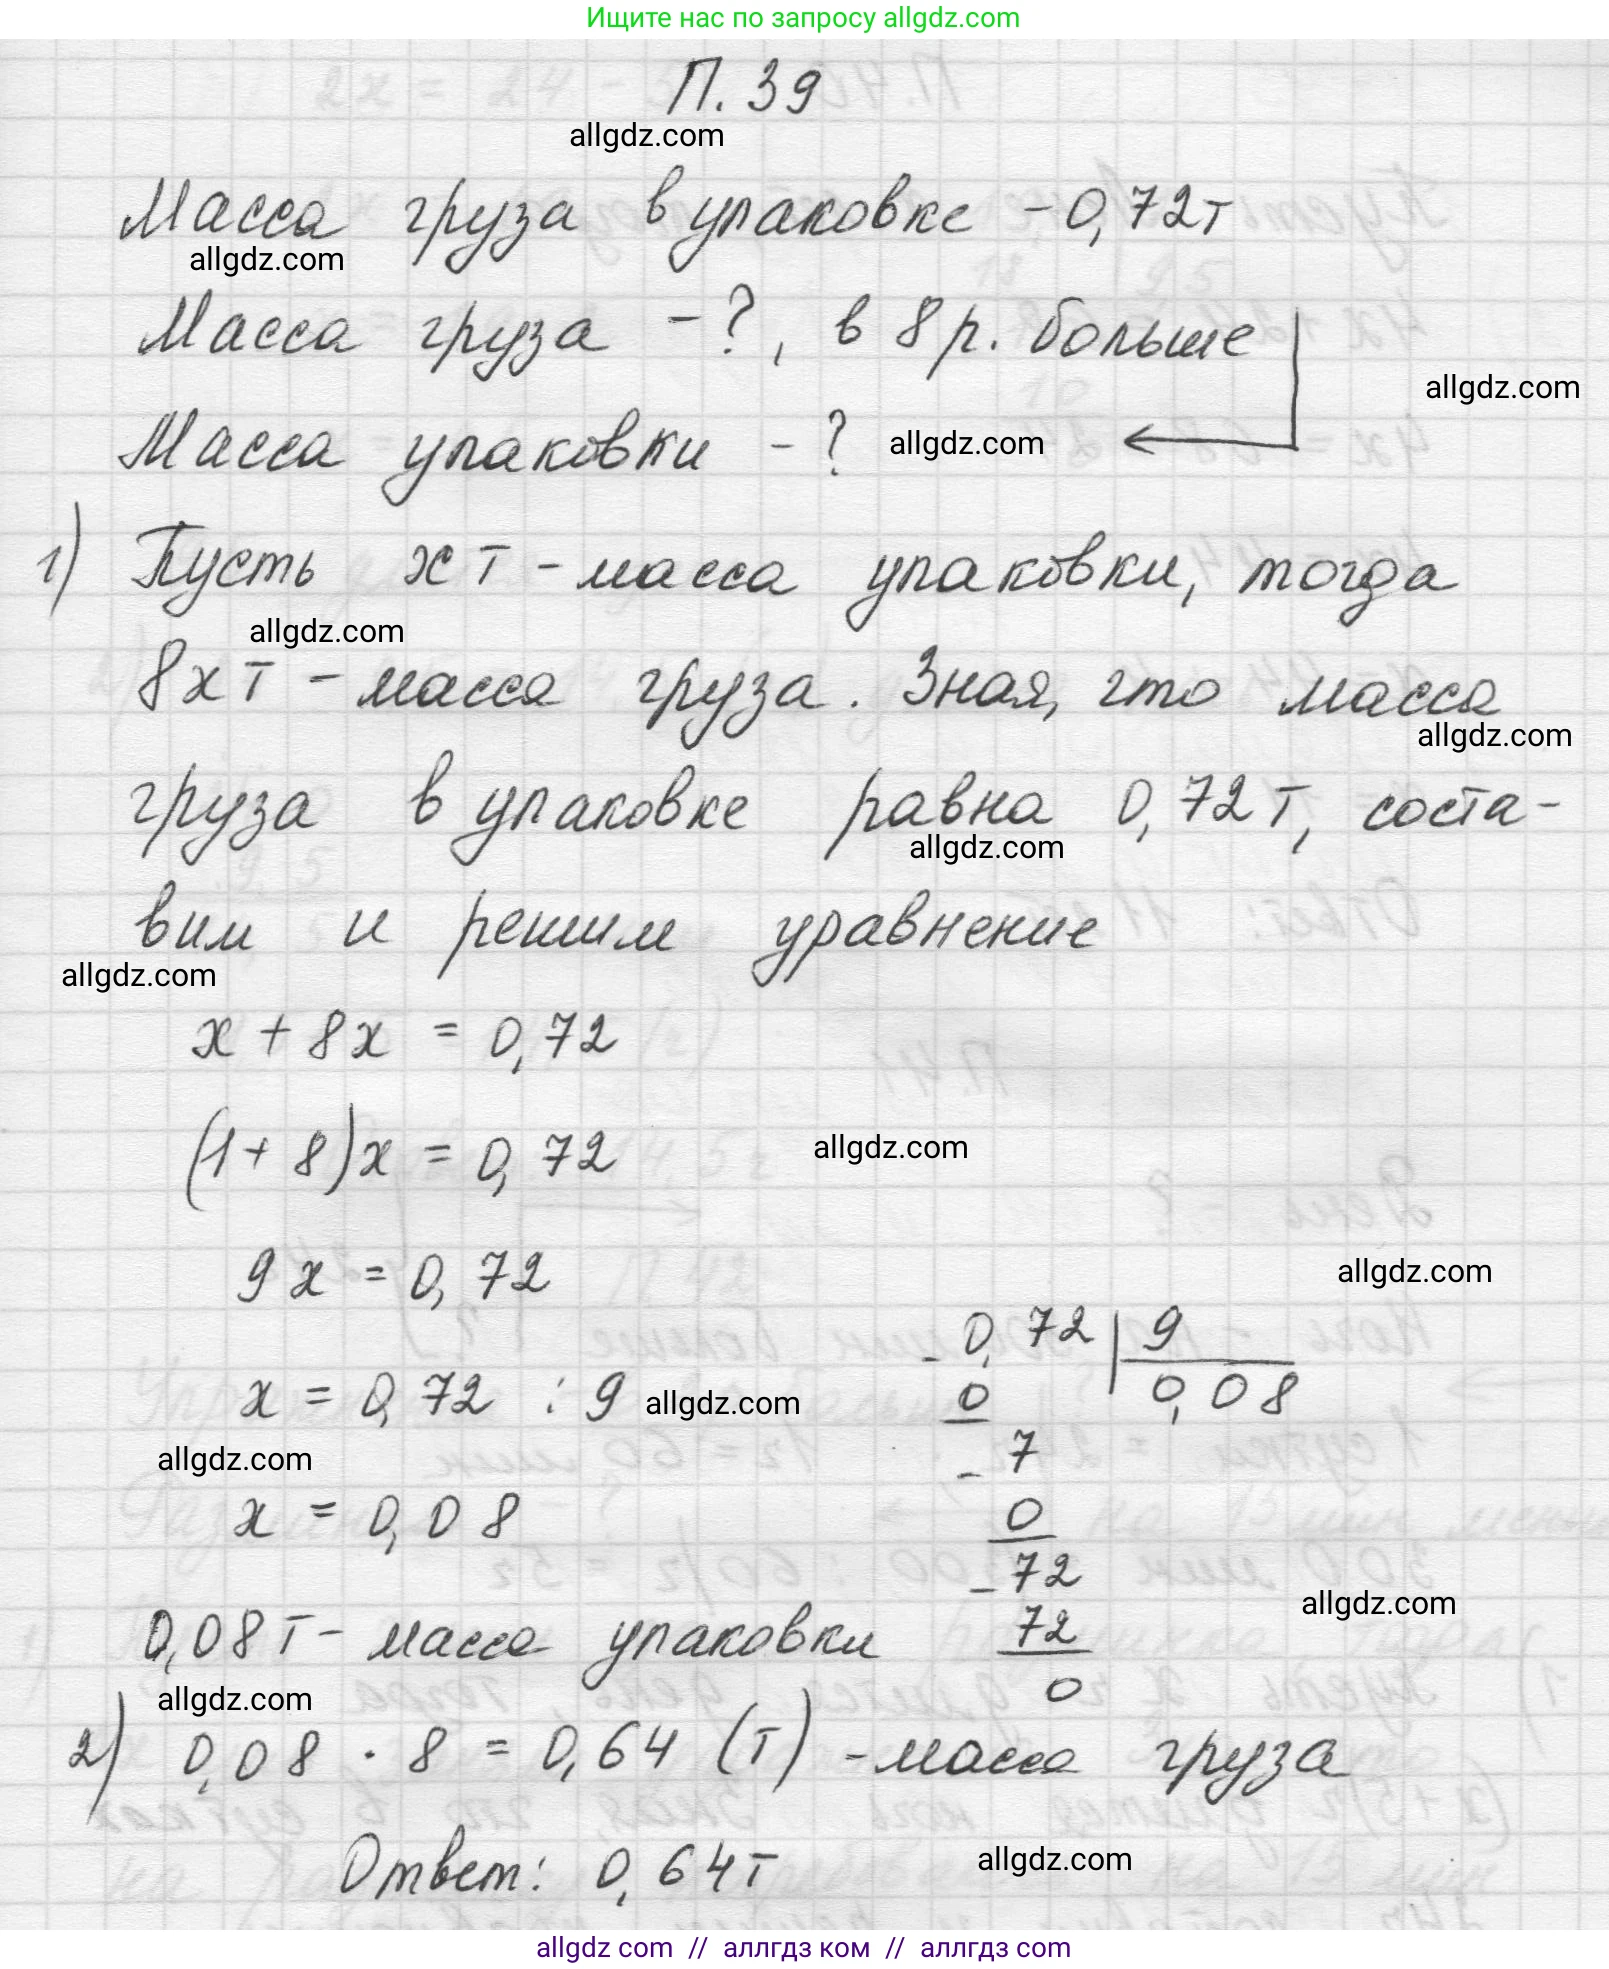 Ищите нас по запросу allgdz.com
П. 39
allgdz.com
Масса груза в упаковке - 0,72т
allgdz.com
Масса груза - ?, в 8 р. больше
allgdz.com
Масса упаковки - ?
allgdz.com
1) Пусть x т - масса упаковки, тогда
allgdz.com
8x т - масса груза. Зная, что масса
allgdz.com
груза в упаковке равна 0,72 т, соста-
allgdz.com
вим и решим уравнение
allgdz.com
x + 8x = 0,72
(1+ 8)x = 0,72
allgdz.com
9x = 0,72
allgdz.com
x = 0,72 : 9
allgdz.com
allgdz.com
x = 0,08
- 0,72 | 9
0 0,08
- 7
0
- 72
72
0
allgdz.com
0,08 т - масса упаковки
allgdz.com
2) 0,08 · 8 = 0,64 (т) - масса груза
Ответ: 0,64т
allgdz.com
allgdz com // аллгдз ком // аллгдз com